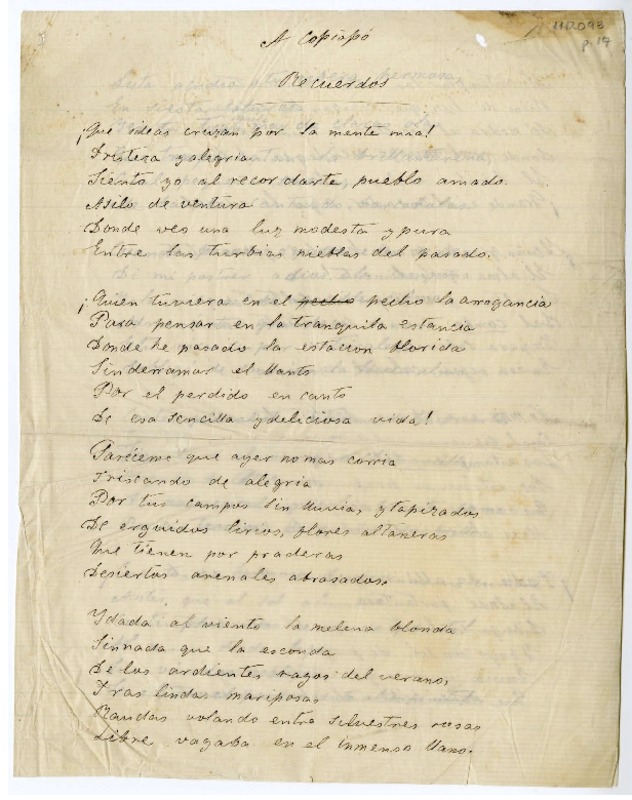 1112093
p. 17
A Copiapó
Recuerdos
¡Que ideas cruzan por la mente mia!
Tristeza y alegria
Siento yo al recordarte pueblo amado.
Asilo de ventura
Donde veo una luz modesta y pura
Entre las turbias nieblas del pasado.
¡Quien tuviera en el pecho pecho la arrogancia
Para pensar en la tranquila estancia
Donde he pasado la estacion florida
Sin derramar el llanto
Por el perdido en canto
De esa sencilla y deliciosa vida!
Paréceme que ayer no mas corria
Triscando de alegria
Por tus campos sin lluvia, y tapizados
De erguidos lirios, flores altaneras
Que tienen por praderas
Desiertos arenales abrasados.
Y dada al viento la melena blonda
Sin nada que la esconda
De los ardientes rayos del verano,
Tras lindas mariposas
Raudas volando entre silvestres rosas
Libre vagaba en el inmenso llano.